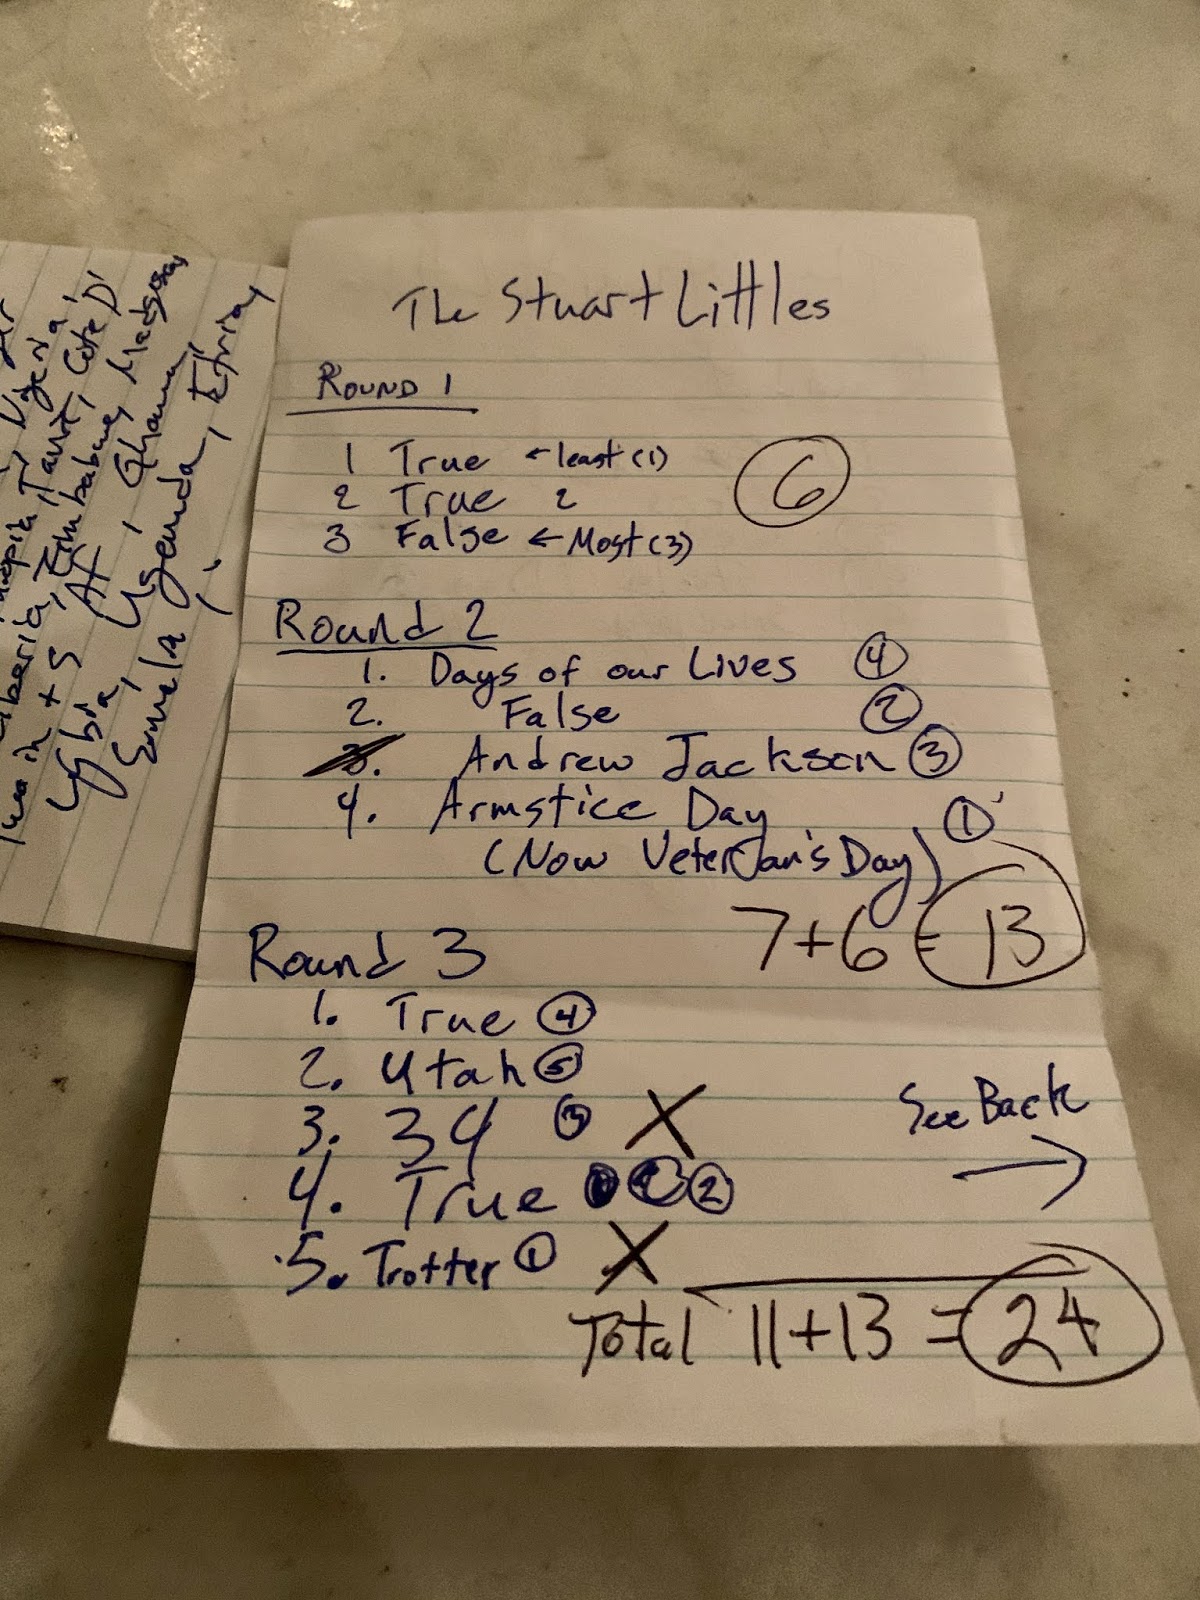 The Stuart Littles
ROUND 1
1 True ← least (1)
2 True 2
3 False ← Most (3)
6
Round 2
1. Days of our Lives 4
2. False 2
3. Andrew Jackson 3
4. Armstice Day 1
(Now Veteran's Day)
7+6 = 13
Round 3
1. True 4
2. Utah 5
3. 34 3 X
See Back
→
4. True 2
5. Trotter 1 X
Total 11+13 = 24
Nigeria,
Cote D'
Liberia, Zimbabwe, Madgsca,
Ghana,
Ugunda,